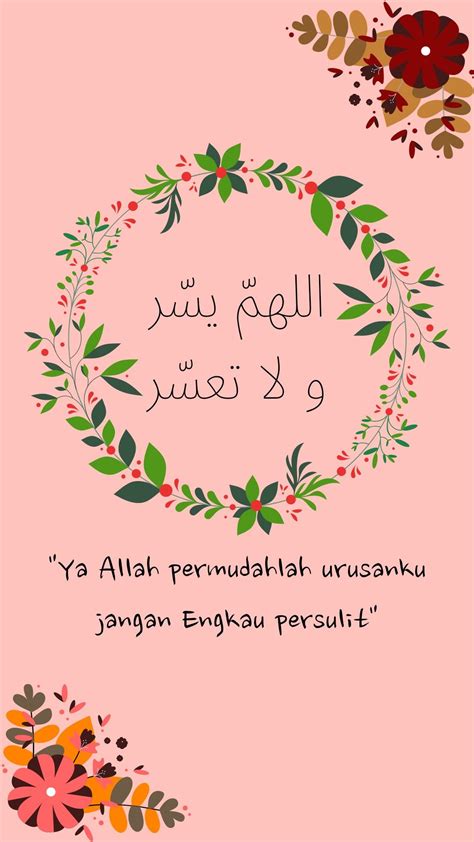 اللهمّ يسّر
و لا تعسّر
"Ya Allah permudahlah urusanku
jangan Engkau persulit"